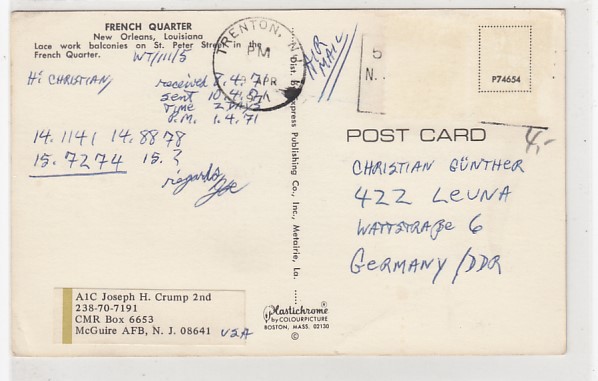 FRENCH QUARTER
New Orleans, Louisiana
Lace work balconies on St. Peter Street in the
French Quarter.
WT/111/5
Hi CHRISTIAN,
received 7.4.71
sent 10.4.71
TIME 2 DAYS
P.M. 1.4.71
14.1141 14.8878
15.7274 15.?
regards
Joe
A1C Joseph H. Crump 2nd
238-70-7191
CMR Box 6653
McGuire AFB, N. J. 08641 USA
TRENTON, N.J.
PM
APR
AIR
MAIL
Express Publishing Co., Inc., Metairie, La.
Plastichrome ®
by COLOURPICTURE
BOSTON, MASS. 02130
©
5
N.
P74654
POST CARD
4,-
CHRISTIAN GÜNTHER
422 LEUNA
WATTSTRAßE 6
GERMANY/DDR